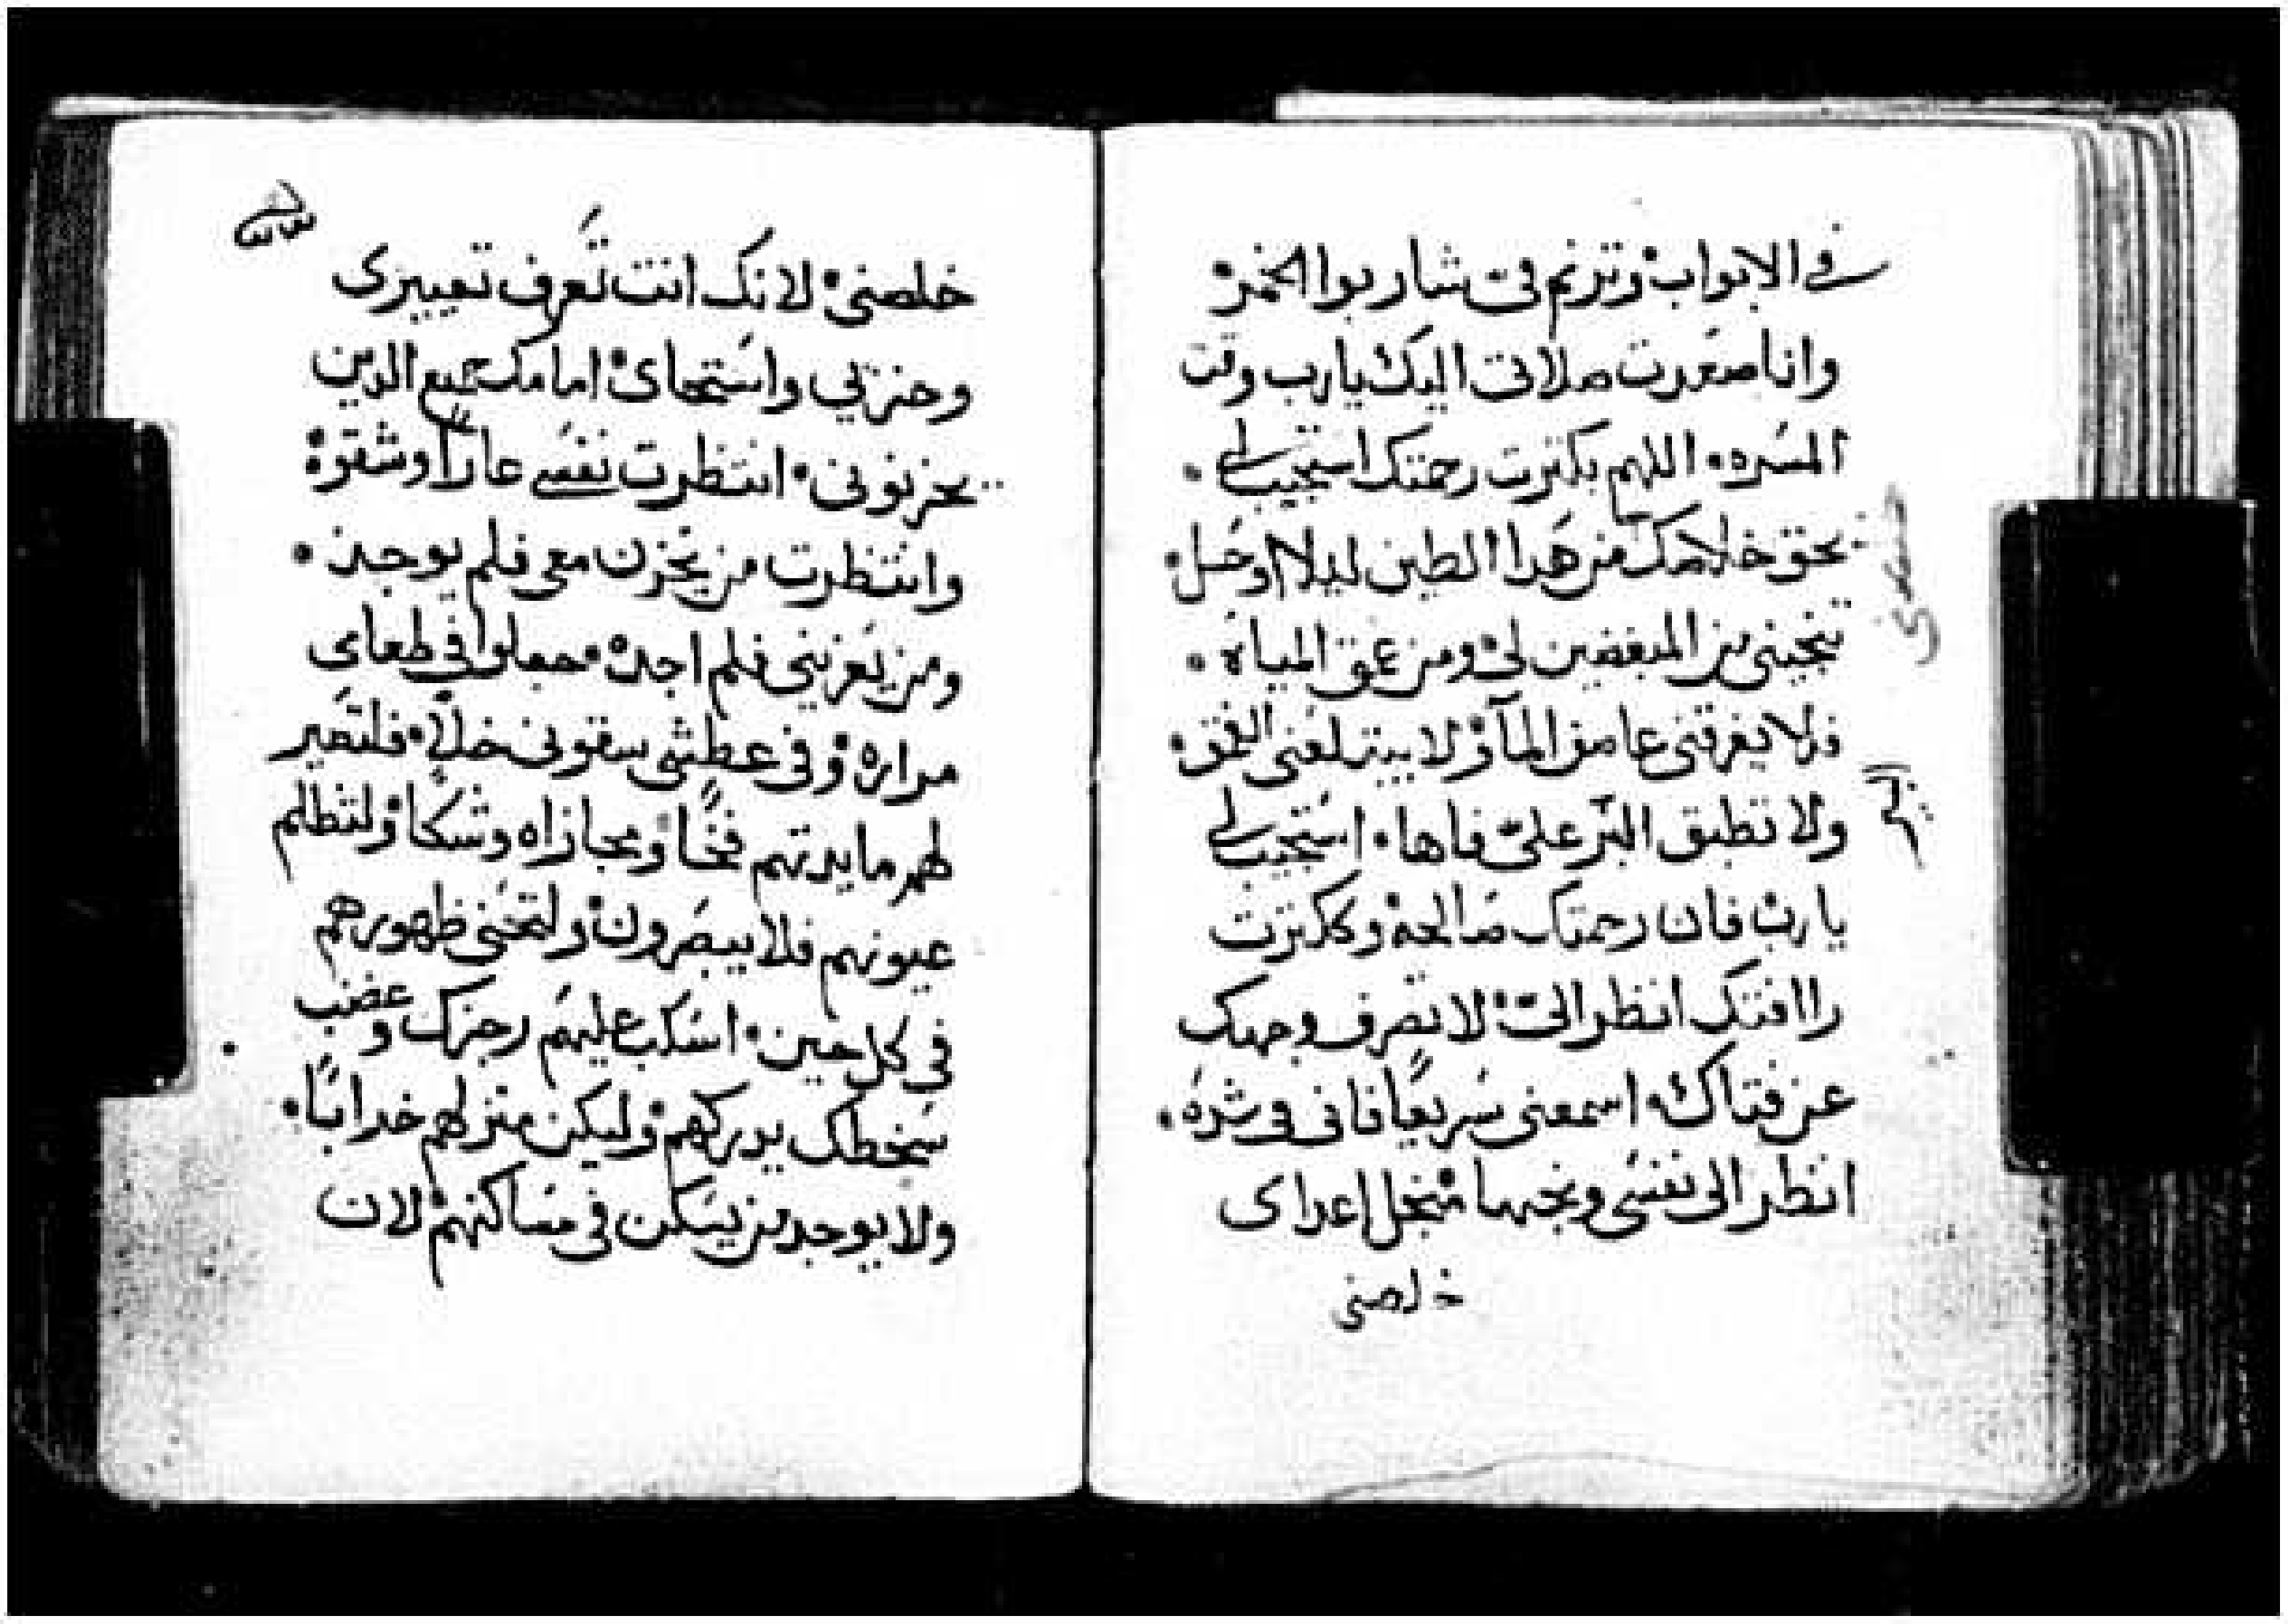 في الابواب وترنم فيّ شاربوا الخمر
وانا صعدت صلاتى اليك يا رب وقت
المسره اللهم بكثرت رحمتك استجيب لي
بحق خلاصك من هدا الطين ليلا اوحل
تنجينى من المبغضين لى ومن عمق المياه
فلا يغرقنى عاصف المآ ولا يبتلعنى العمق
ولا تطبق البير علىّ فاها استجيب لي
يا رب فان رحمتك صالحه وككثرت
راافتك انظر الىّ لا تصرف وجهك
عن فتاك اسمعنى سريعًا فانى فى شده
انظر الى نفسى ونجها منجل اعداى
خلصنى
البير
خلصنى لانك انت تعرف تعييرى
وخزيي واستحاى امامك جميع الدين
يحزنونى انتظرت نفسي عارًا وشقوة
وانتظرت من يحزن معى فلم يوجد
ومن يعزينى فلم اجد جعلوا في طعامى
مراره وفى عطشى سقونى خلًا فلتصير
لهم مايدتهم فخًا ومجازاه وشكًا ولتظلم
عيونهم فلا يبصرون ولتحنى ظهورهم
في كل حين اسكب عليهم رجزك وغضب
سخطك يدركهم وليكن منزلهم خرابًا
ولا يوجد من يسكن فى مساكنهم لان